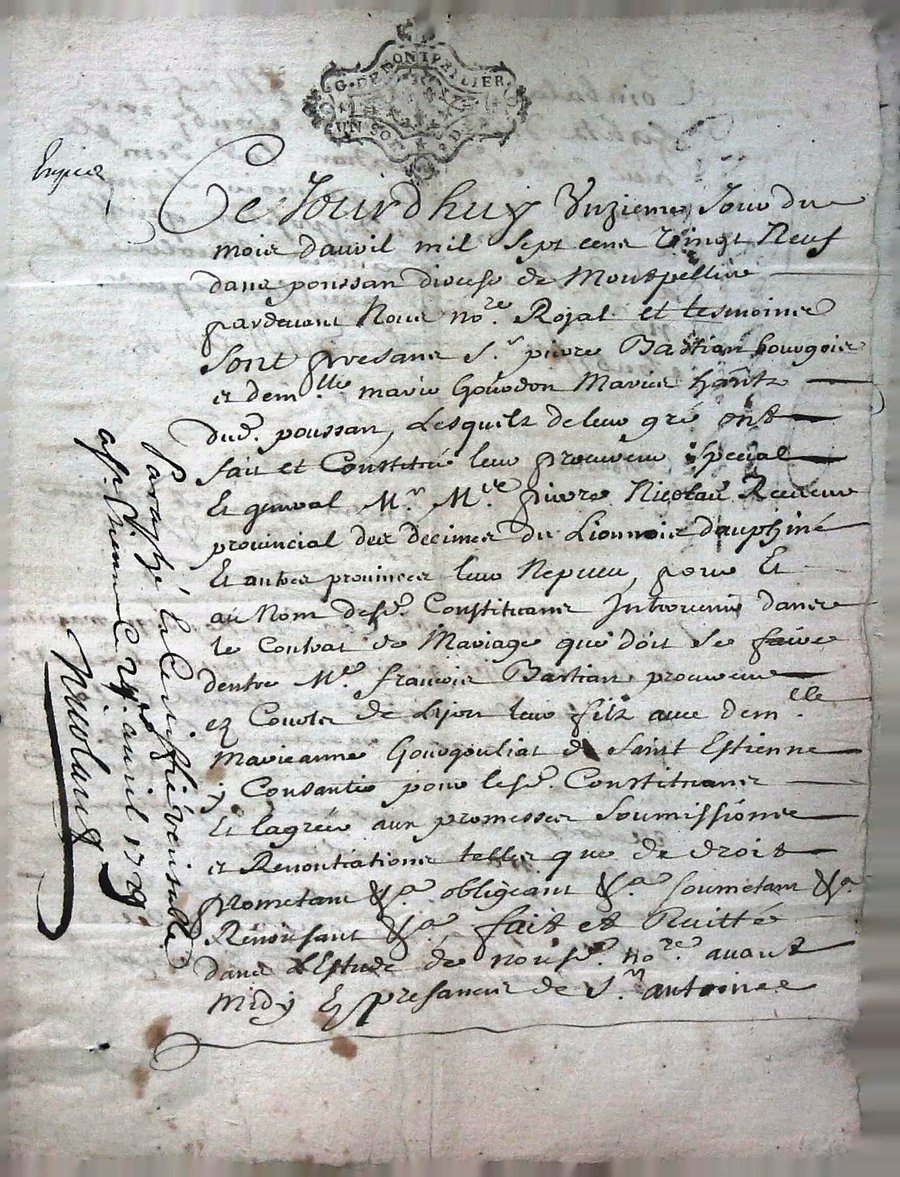 G. DE MONTPELLIER
UN SOL
Ce Jourdhuy Unzieme Jour du
mois davril mil sept cens vingt Neuf
dans poussan diocese de Montpellier
pardevant Nous no.re Rojal et tesmoins
sont presans S.r pierre Bastian bourgois
et dem.lle marie Gourdon Maries habts
dud. poussan, Lesquelz de leur gré ont
fait et Constitué leur procureur special
Et general M.r M.re pierre Nicolau Receveur
provincial des decimes du Lionnois dauphiné
Et autres provinces leur Nepveu, pour Et
au Nom desd. Constituans Intervenir dans
le Contrat de Mariage que doit se faire
dentre M.e francois Bastian procureur
ez Cours de Lijon leur filz avec dem.lle
Marieanne Gourgouliat de Saint Estienne
y Consantir pour lesd. Constituans
Et lagreer aux promesses soumissions
et Renontiations telles que de droit
prometant &.a obligeant &.a soumetant &.a
Renonsant &.a fait et Recitté
dans L'Estude de nousd. no.re avant
midy Ez presances de S.r antoine
Paraphé le Certiffié veritable
24.e avril 1729
Nicolau